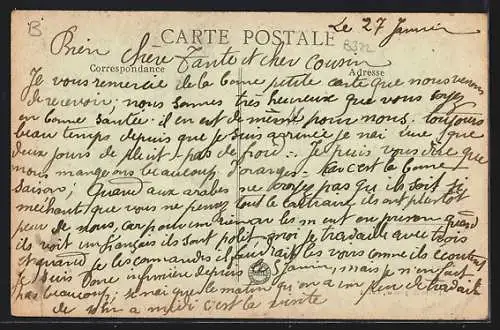 B
CARTE POSTALE
Le 27 Janvier
B322
Bien chère Tante et cher Cousin
Correspondance
Adresse
Je vous remercie de la bonne petite carte que nous venons
de recevoir; nous sommes très heureux que vous soyez
en bonne santée. il en est de même pour nous. toujours
beau temps depuis que je suis arrivée je nai vue que
deux jours de pluit - pas de froid -. Je puis vous dire que
nous mangeons beaucoup d'oranges - car c'est la bonne
saison; Quand aux arabes ne croyez pas qu'ils soit
méchant que vous ne pensez tout le contraire ils ont plutot
peur de nous, car pour un rien on les met en prison quand
ils voit un français ils sont polit. moi je travaille avec trois
et quand je les commandes il faudrait les vous comme ils écoutent
Je suis infirmière depuis le 5 Janvier, mais je n'en fait
pas beaucoup; je nai que le matin qu'on a un peu de travail
de a midi c'est la visite